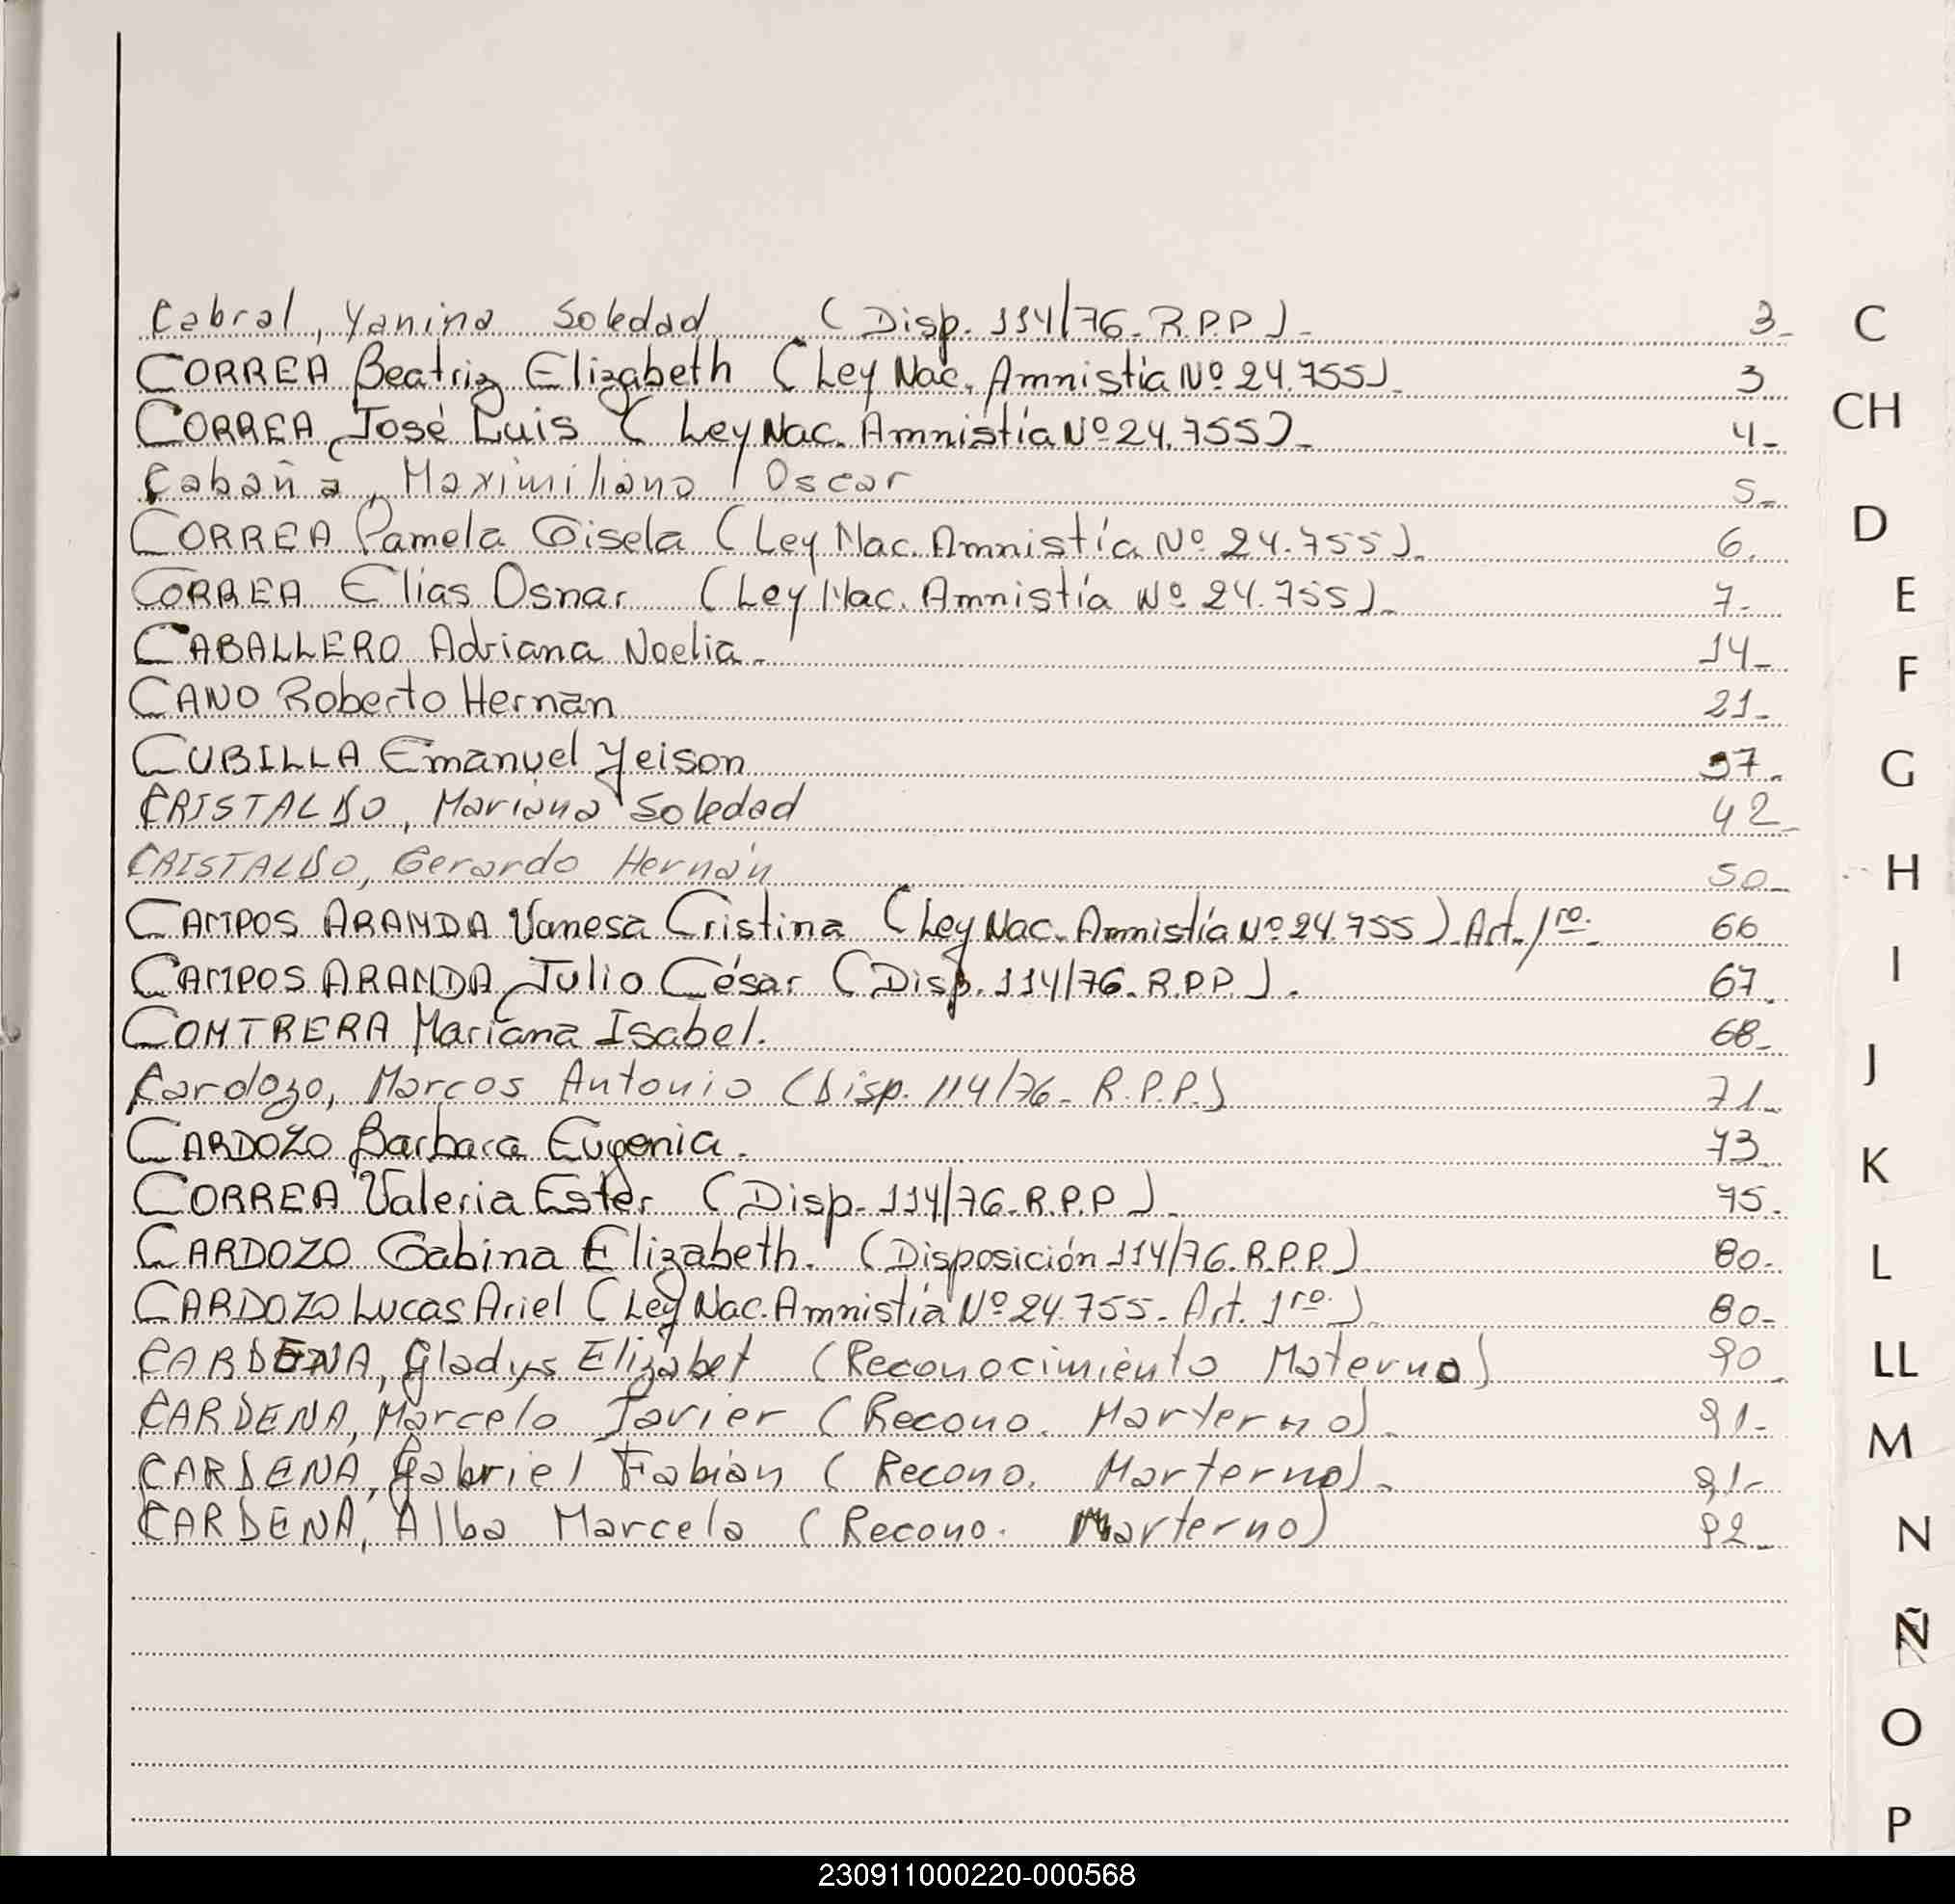 Cabral, Yanina Soledad (Disp. 114/76. R.P.P). 3-
CORREA Beatriz Elizabeth (Ley Nac. Amnistía Nº 24.755). 3
CORREA José Luis (Ley Nac. Amnistía Nº 24.755). 4-
Cabaña, Maximiliano Oscar 5-
CORREA Pamela Gisela (Ley Nac. Amnistía Nº 24.755). 6.
CORREA Elias Osnar (Ley Nac. Amnistía Nº 24.755). 7-
CABALLERO Adriana Noelia. 14-
CANO Roberto Hernan 21-
CUBILLA Emanuel Yeison 37.
CRISTALDO, Mariana Soledad 42-
CRISTALDO, Gerardo Hernán 50-
CAMPOS ARANDA Vanesa Cristina (Ley Nac. Amnistía Nº 24.755) Art. 1ro. 66
CAMPOS ARANDA Julio César (Disp. 114/76. R.P.P.). 67.
CONTRERA Mariana Isabel. 68-
Cardozo, Marcos Antonio (Disp. 114/76- R.P.P.) 71-
CARDOZO Barbara Eugenia. 73.
CORREA Valeria Ester (Disp. 114/76. R.P.P). 75.
CARDOZO Gabina Elizabeth. (Disposición 114/76. R.P.P.) 80-
CARDOZO Lucas Ariel (Ley Nac. Amnistía Nº 24.755- Art. 1ro.). 80-
CARDENA, Gladys Elizabet (Reconocimiento Materno) 90
CARDENA, Marcelo Javier (Recono. Marterno). 91-
CARDENA, Gabriel Fabian (Recono. Marterno). 91-
CARDENA, Alba Marcela (Recono. Marterno) 92-
C
CH
D
E
F
G
H
I
J
K
L
LL
M
N
Ñ
O
P
230911000220-000568